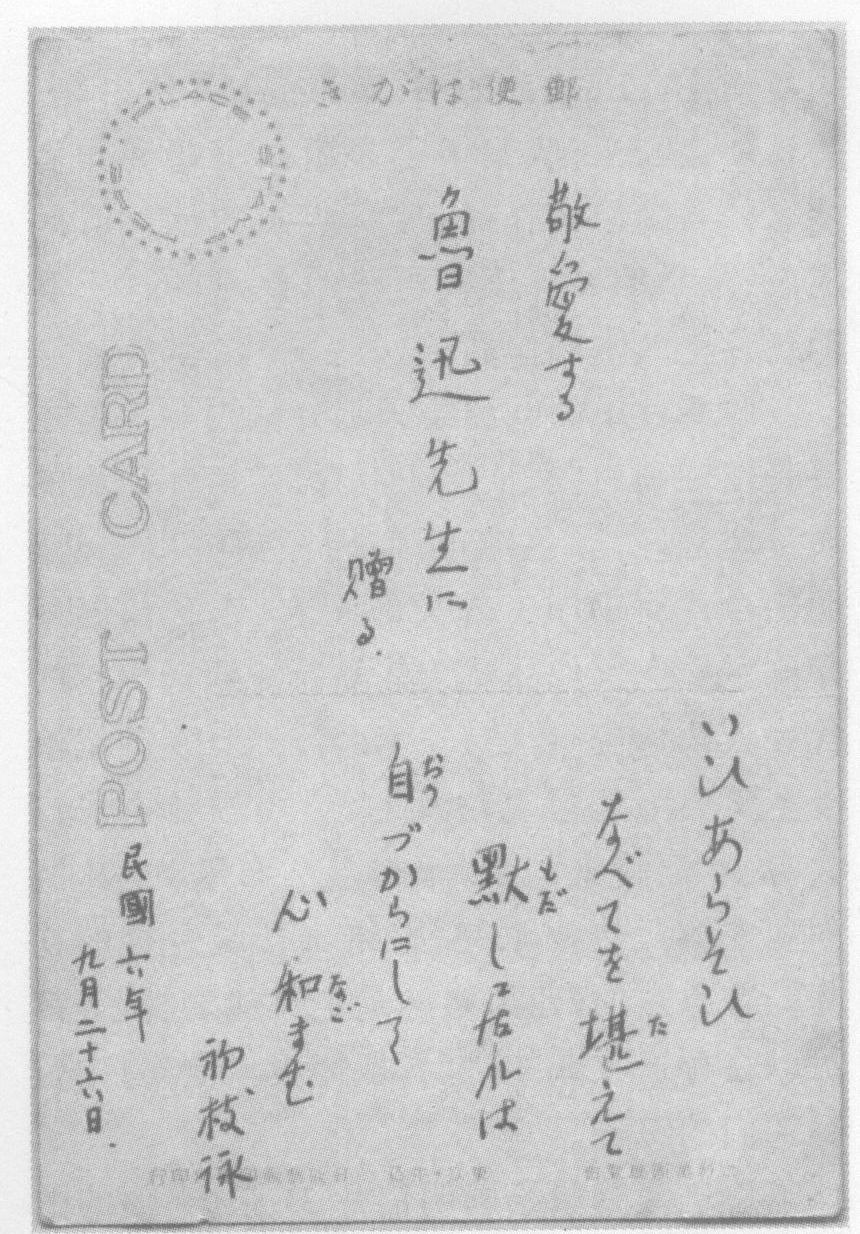 郵便はがき
敬愛する
魯迅先生に
贈る.
いひあらそひ
なべてを堪えて
た
默して居れは
もだ
自づからにして
おの
心和まむ
なご
初枝詠
民國六年
九月二十六日.
POST CARD